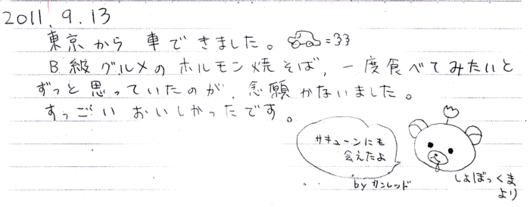 2011.9.13
東京から 車で きました。 =33
B級グルメの ホルモン焼そば, 一度食べてみたいと
ずっと思っていたのが, 念願かないました。
すっごい おいしかったです。
サキューンにも
会えたよ
by カンレッド
しょぼっくま
より